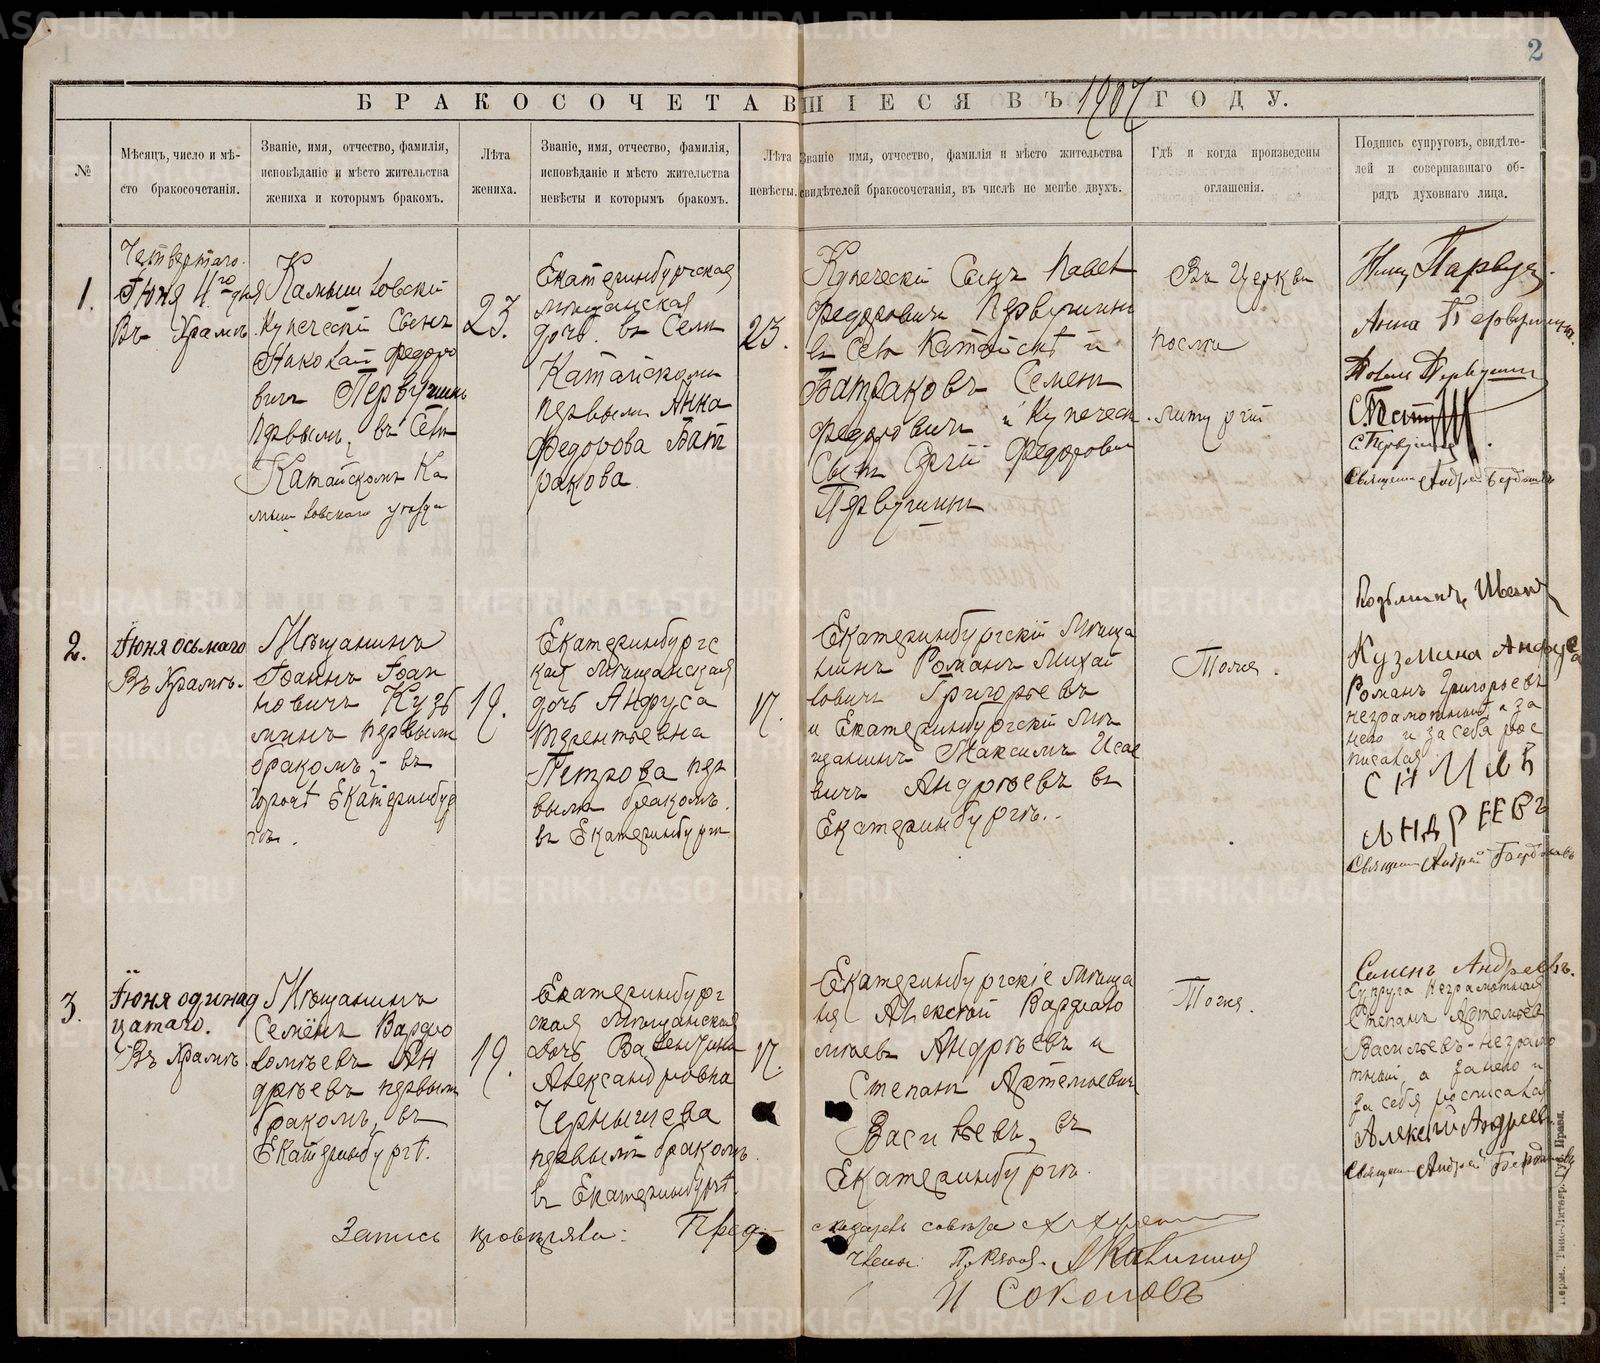 2
БРАКОСОЧЕТАВШІЕСЯ ВЪ 1907 ГОДУ.
№
Мѣсяцъ, число и мѣ-
сто бракосочетанія.
Званіе, имя, отчество, фамилія,
исповѣданіе и мѣсто жительства
жениха и которымъ бракомъ.
Лѣта
жениха.
Званіе, имя, отчество, фамилія,
исповѣданіе и мѣсто жительства
невѣсты и которымъ бракомъ.
Лѣта
невѣсты.
Званіе имя, отчество, фамилія и мѣсто жительства
свидѣтелей бракосочетанія, въ числѣ не менѣе двухъ.
Гдѣ и когда произведены
оглашенія.
Подпись супруговъ, свидѣте-
лей и совершавшаго об-
рядъ духовнаго лица.
1.
Четвертаго
Іюня 4го дня
Въ Храмѣ
Камышловскій
Купеческій Сынъ
Николай Федоро
вичъ Первушинъ
первымъ, въ Селѣ
Катайскомъ Ка
мышловскаго уѣзда
23.
Екатеринбургская
мѣщанская
дочь въ Селѣ
Катайскомъ
первымъ Анна
Федорова Бат
ракова
23.
Купеческій Сынъ Павелъ
Федоровичъ Первушинъ
въ Селѣ Катайскѣ и
Батраковъ Семенъ
Федоровичъ и Купеческ
Сынъ Сергій Федорови
Первушинъ
Въ Церкви
послѣ
литургіи
Анна Первушина
Павелъ Первушинъ
С. Первушинъ
Священ Андрей
2.
Іюня осьмаго
Въ Храмѣ.
Мѣщанинъ
Іоаннъ Іоан
новичъ Кузь
минъ первымъ
бракомъ, въ
городѣ Екатеринбур
гѣ.
19.
Екатеринбургс
кая Мѣщанская
дочь Анфуса
Терентьевна
Петрова пер
вымъ бракомъ.
въ Екатеринбургѣ
17.
Екатеринбургскій Мѣща
нинъ Романъ Михай
ловичъ Григорьевъ
и Екатеринбургскій Мѣ
щанинъ Максимъ Исае
вичъ Андреевъ въ
Екатеринбургѣ.
Тоже.
Козьминъ Иванъ
Кузмина Анфуса
Романъ Григорьевъ
неграмотный а за
него и за себя рос
писался
АНДРЕЕВЪ
Священ Андрей
3.
Іюня одинад
цатаго.
Въ Храмѣ.
Мѣщанинъ
Семёнъ Варфо
ломѣевъ Ан
дреевъ первымъ
бракомъ, въ
Екатеринбургѣ.
19.
Екатеринбург
ская Мѣщанская
дочь Валентина
Александровна
Чернышева
первымъ бракомъ.
въ Екатеринбургѣ.
17.
Екатеринбургскіе Мѣща
не Алексѣй Варфоло
мѣевъ Андреевъ и
Степанъ Артемьевич
Васильевъ, въ
Екатеринбургѣ.
Тоже.
Семенъ Андреевъ.
Супруга неграмотная
Степанъ Артемьев
Васильевъ неграмо
тный а за него и
за себя росписался
Алексѣй Андреев
Священ Андрей
Запись провѣряли: Пред
сѣдатель совѣта
Члены:
И Соколовъ
METRIKI.GASO-URAL.RU